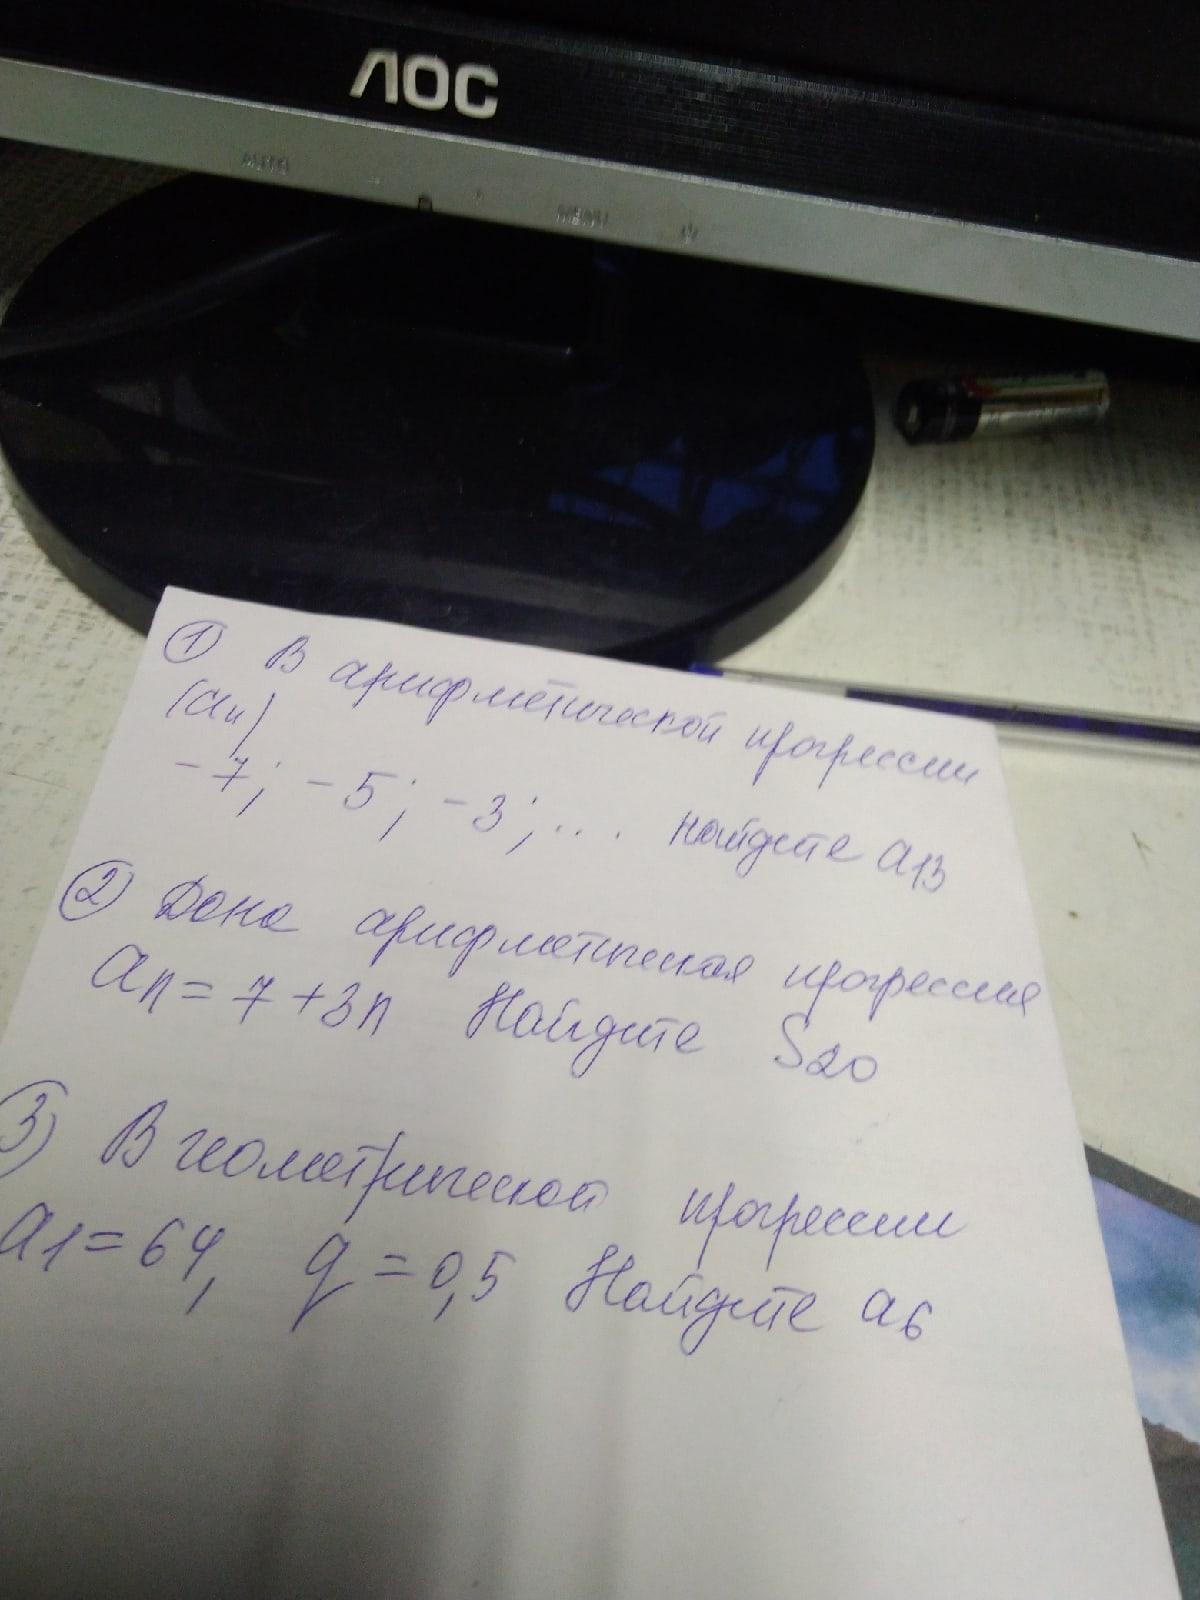 AOC
AUTO
MENU
① В арифметической прогрессии
(an)
-7; -5; -3;... найдите a13
② Дана арифметическая прогрессия
an = 7 + 3n Найдите S20
③ В геометрической прогрессии
a1 = 64, q = 0,5 Найдите a6